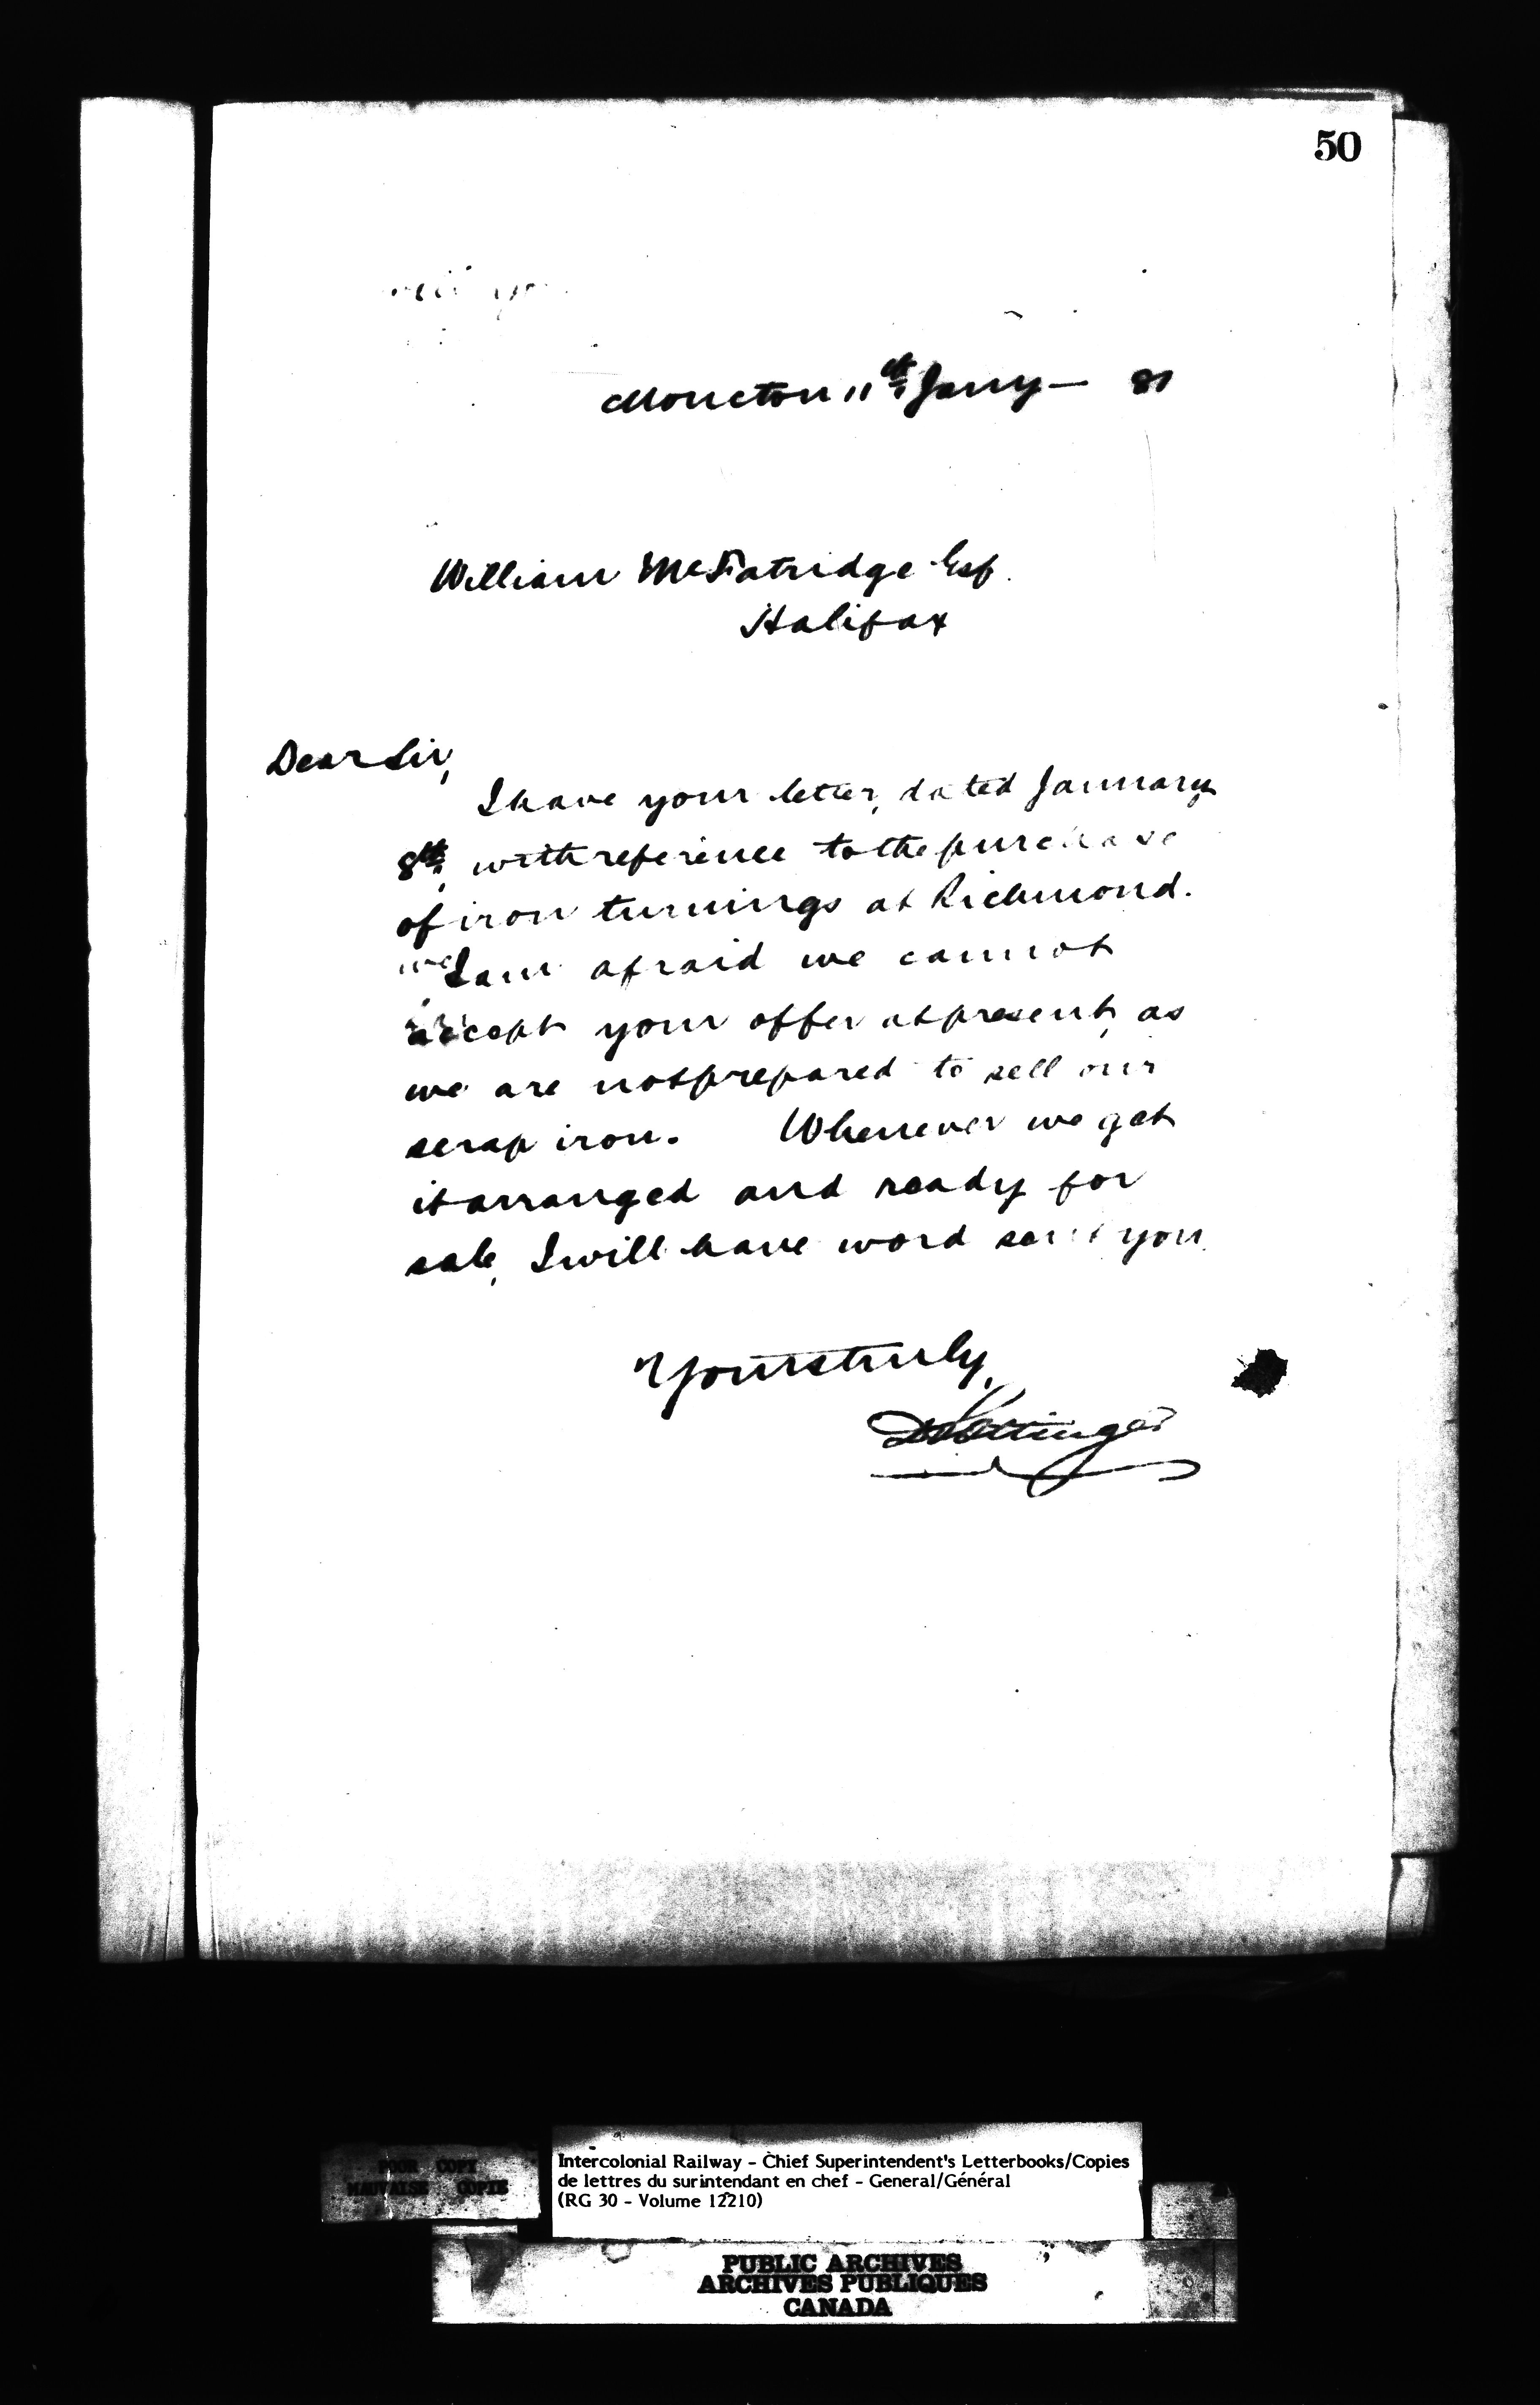 50
Moncton 11th Jany — 81
William McFatridge Esq.
Halifax
Dear Sir,
I have your letter, dated January
8th, with reference to the purchase
of iron turnings at Richmond.
I am afraid we cannot
accept your offer at present, as
we are not prepared to sell our
scrap iron. Whenever we get
it arranged and ready for
sale, I will have word sent you.
Yours truly,
D Pottinger
POOR COPY
MAUVAISE COPIE
Intercolonial Railway - Chief Superintendent's Letterbooks/Copies
de lettres du surintendant en chef - General/Général
(RG 30 - Volume 12210)
PUBLIC ARCHIVES
ARCHIVES PUBLIQUES
CANADA